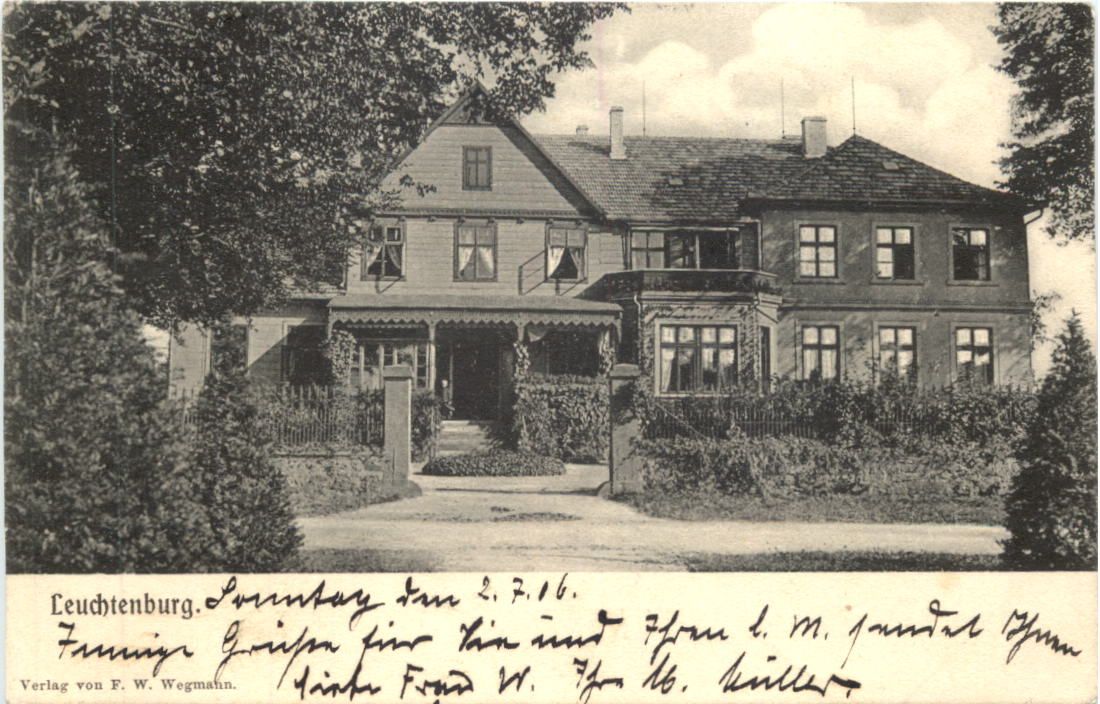 Leuchtenburg. Sonntag den 2.7.06.
Innige Grüße für Sie und Ihren l. M. sendet Ihnen
Verlag von F. W. Wegmann. liebe Frau W. Ihre M. Müller.